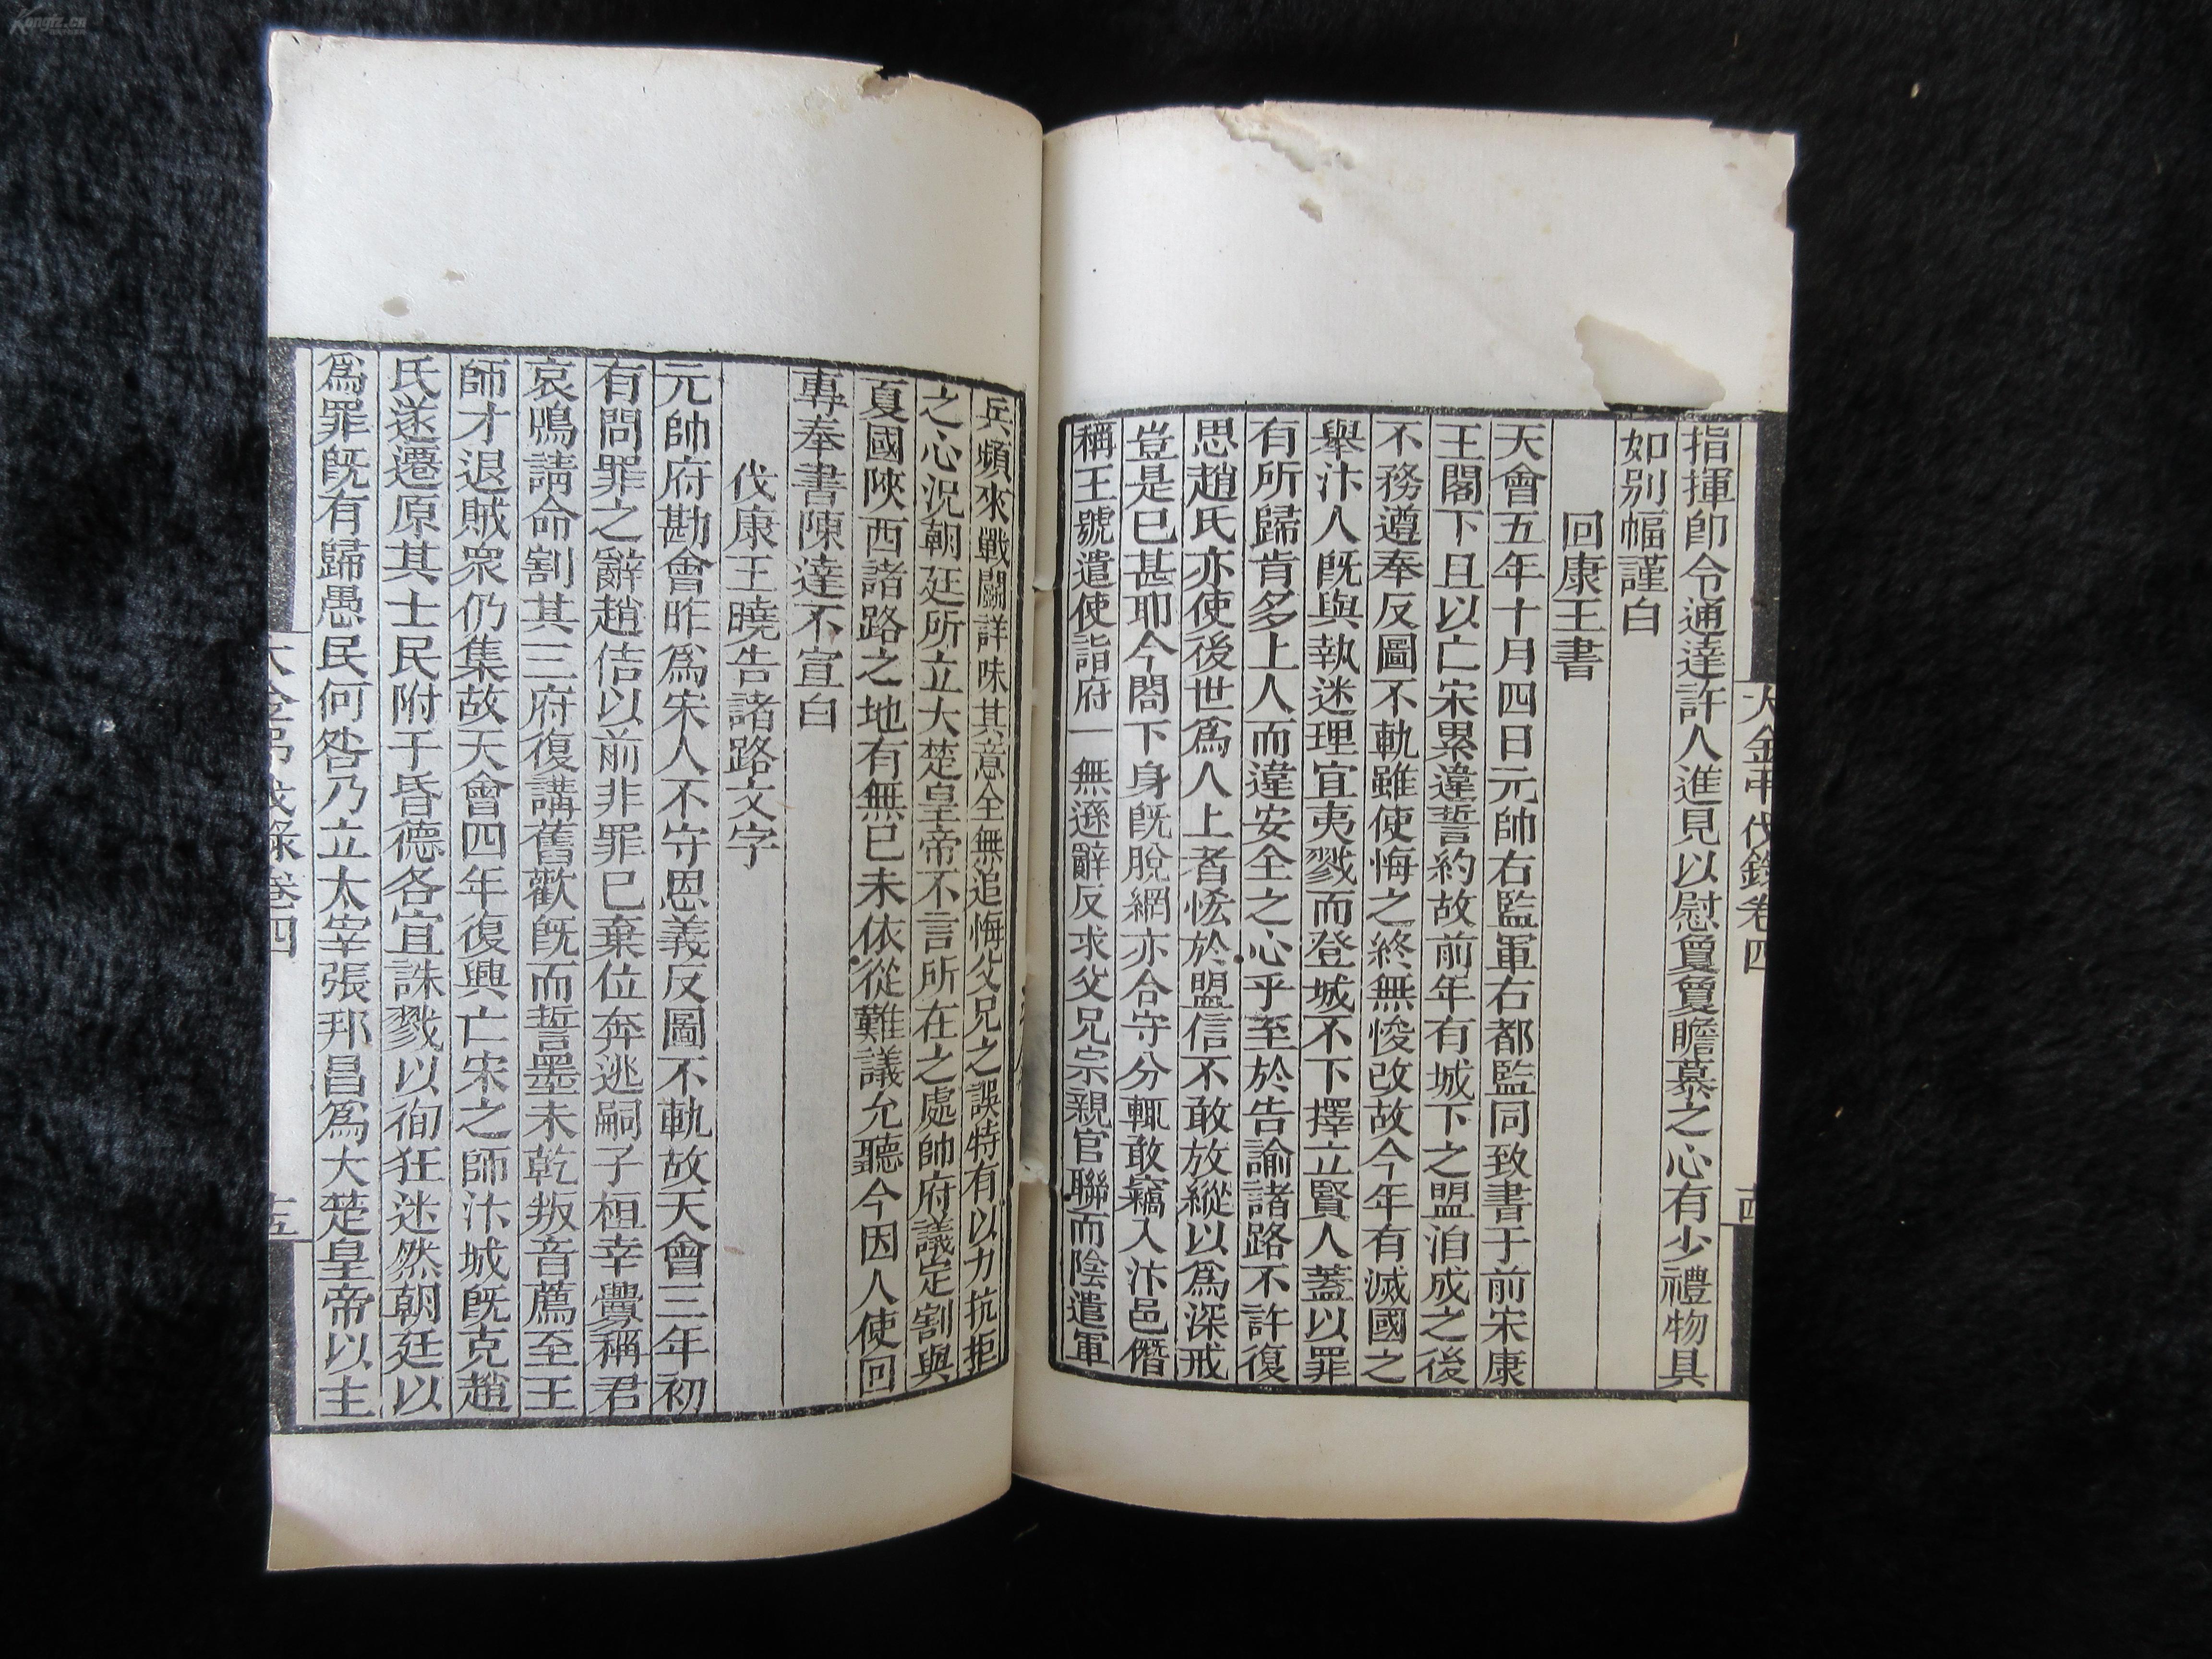 大金弔伐錄卷四
十四
指揮帥令通達許人進見以慰敻敻瞻慕之心有少禮物具
如别幅謹白
回康王書
天會五年十月四日元帥右監軍右都監同致書于前宋康
王閣下且以亡宋累違誓約故前年有城下之盟洎成之後
不務遵奉反圖不軌雖使悔之終無悛改故今年有滅國之
舉汴人旣與執迷理宜夷戮而登城不下擇立賢人蓋以罪
有所歸肯多上人而違安全之心乎至於告諭諸路不許復
思趙氏亦使後世爲人上者恡於盟信不敢放縱以爲深戒
豈是已甚耶今閤下身旣脫網亦合守分輒敢竊入汴邑僭
稱王號遣使詣府一無遜辭反求父兄宗親官聯而陰遣軍
兵頻來戰鬭詳味其意全無追悔父兄之誤特有以力抗拒
之心況朝廷所立大楚皇帝不言所在之處帥府議定割與
夏國陝西諸路之地有無已未依從難議允聽今因人使回
專奉書陳達不宣白
伐康王曉告諸路文字
元帥府勘會昨爲宋人不守恩義反圖不軌故天會三年初
有問罪之辭趙佶以前非罪已棄位奔逃嗣子桓幸釁稱君
哀鳴請命割其三府復講舊歡旣而誓墨未乾叛音薦至王
師才退賊衆仍集故天會四年復興亡宋之師汴城旣克趙
氏遂遷原其士民附于昏德各宜誅戮以徇狂迷然朝廷以
爲罪旣有歸愚民何咎乃立太宰張邦昌爲大楚皇帝以主
大金弔伐錄卷四
十五